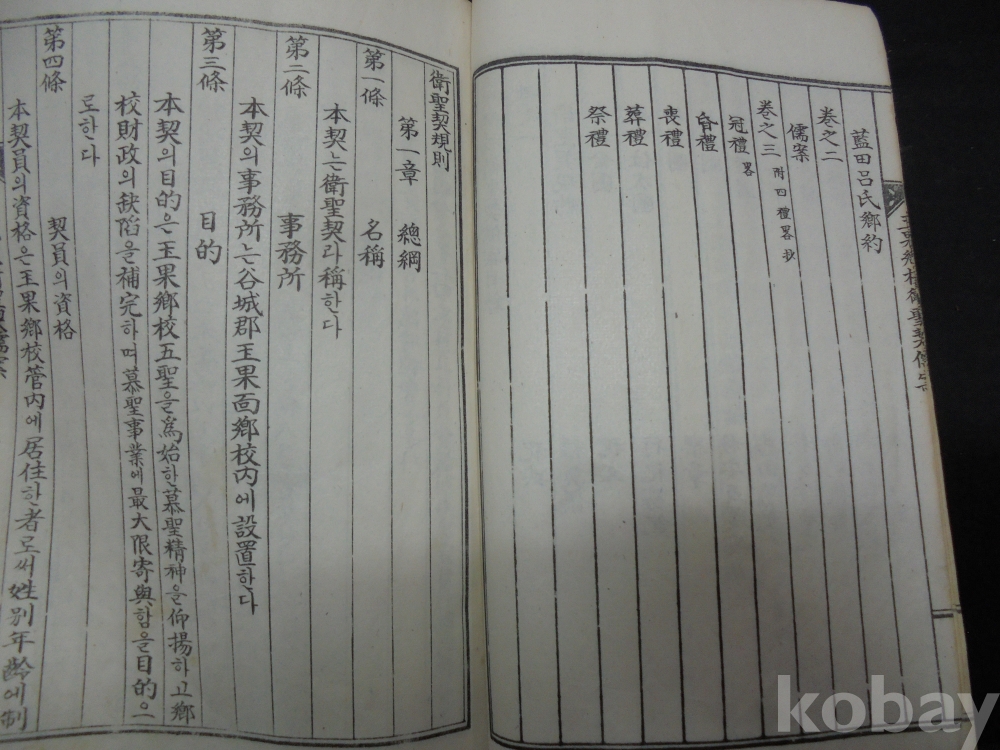 藍田呂氏鄕約
卷之二
儒案
卷之三 附四禮畧抄
冠禮畧
昏禮
喪禮
葬禮
祭禮
衛聖契規則
第一章 總綱
第一條 名稱
本契는衛聖契라稱한다
第二條 事務所
本契의事務所는谷城郡玉果面鄕校內에設置한다
第三條 目的
本契의目的은玉果鄕校五聖을爲始한慕聖精神을仰揚하고鄕
校財政의缺陷을補完하며慕聖事業에最大限寄與함을目的으
로한다
第四條 契員의資格
本契員의資格은玉果鄕校管內에居住한者로써姓別年齡에制
kobay